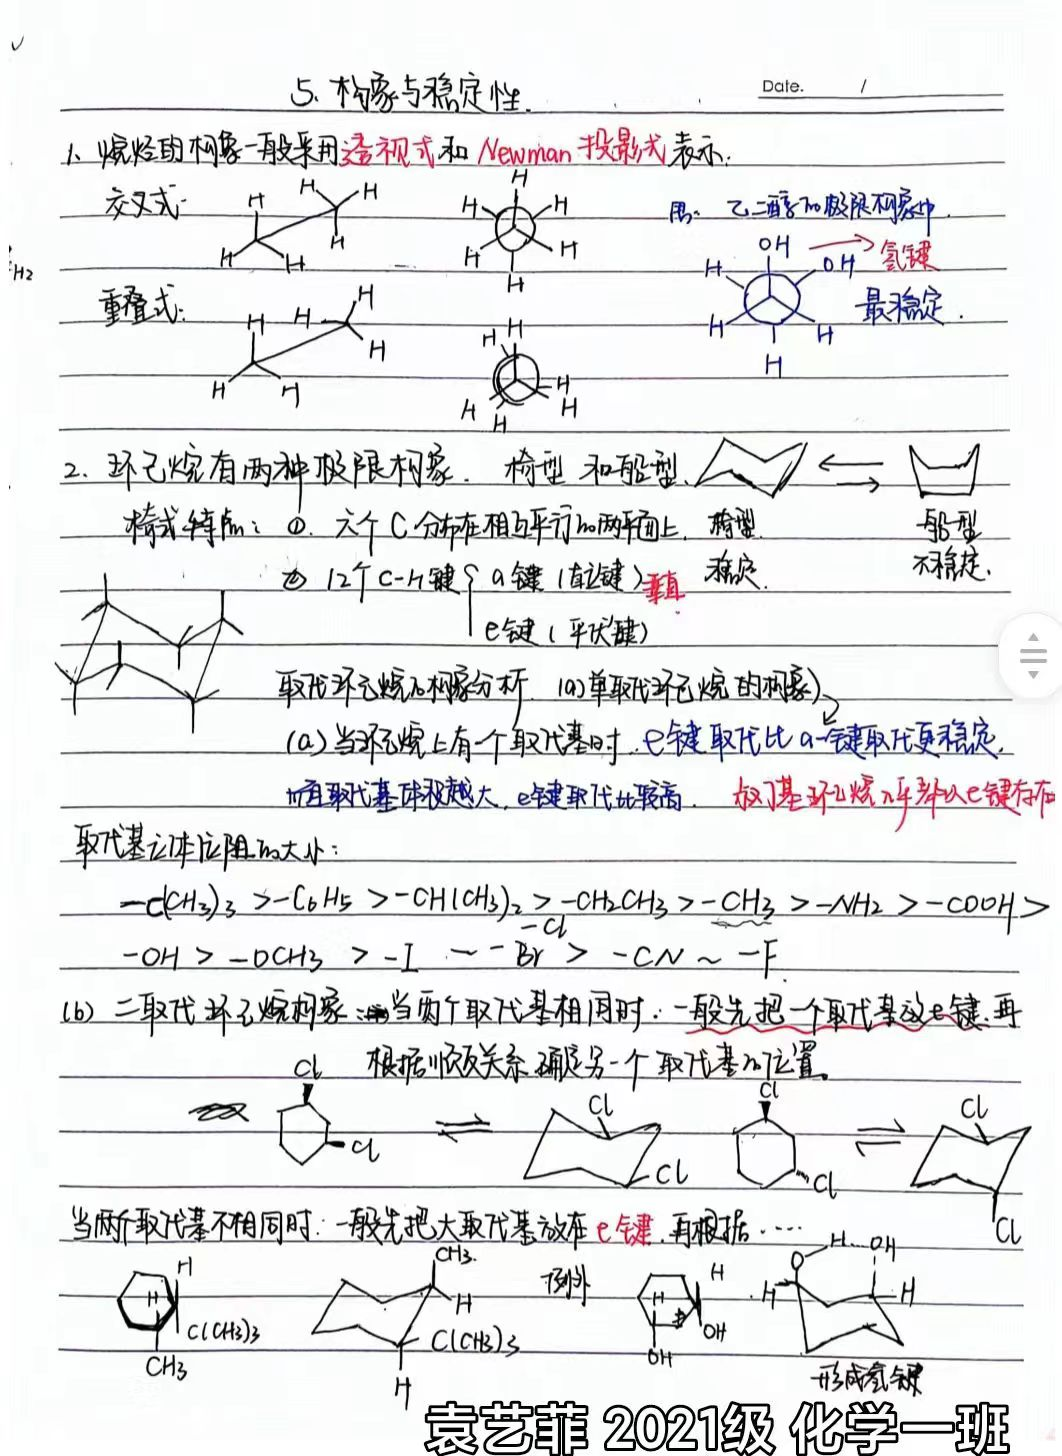 5. 构象与稳定性.
Date. /
1. 烷烃的构象一般采用透视式和 Newman 投影式表示:
交叉式:
H H H H H H
H H H H H H
例: 乙二醇的极限构象中.
OH OH H H H H
氢键
最稳定.
H2
重叠式:
H H H H H H
H H H H H H
2. 环己烷有两种极限构象. 椅型 和船型.
椅式特点: ①. 六个C分布在相互平行的两平面上. 椅型 船型
② 12个C-H键 a键 (直立键) 垂直. 稳定. 不稳定.
e键 (平伏键)
取代环己烷的构象分析. (a)单取代环己烷的构象)
(a) 当环己烷上有一个取代基时. e键取代比a-键取代更稳定.
而且取代基体积越大, e键取代比较高. 故丁基环己烷几乎都以e键存在
取代基立体位阻的大小:
-C(CH3)3 > -C6H5 > -CH(CH3)2 > -CH2CH3 > -CH3 > -NH2 > -COOH >
-Cl
-OH > -OCH3 > -I ~ -Br > -CN ~ -F.
(b) 二取代环己烷构象: 当两个取代基相同时. 一般先把一个取代基放e键. 再
根据顺反关系确定另一个取代基的位置.
Cl Cl Cl Cl Cl Cl Cl Cl
当两个取代基不相同时: 一般先把大取代基放在e键. 再根据....
H H C(CH3)3 CH3
CH3. H C(CH3)3 H
例外
H H OH OH
O H OH H H
形成氢键
袁艺菲 2021级 化学一班